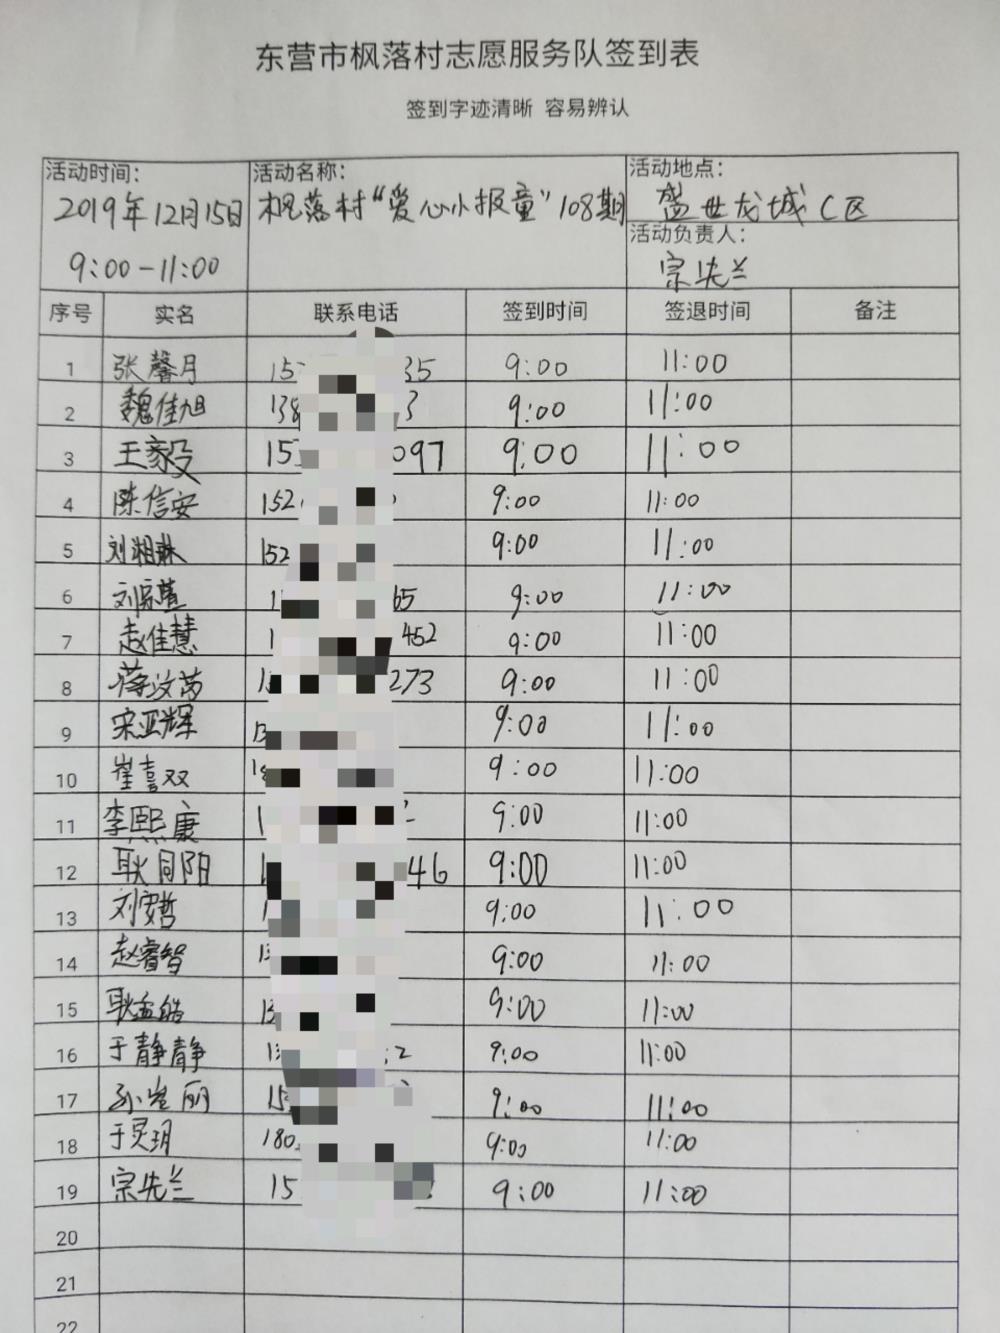 东营市枫落村志愿服务队签到表
签到字迹清晰 容易辨认
活动时间: 活动名称: 活动地点:
2019年12月15日 枫落村“爱心小报童”108期 盛世龙城C区
9:00-11:00 活动负责人:
宗先兰
序号 实名 联系电话 签到时间 签退时间 备注
1 张馨月 15 35 9:00 11:00
2 魏佳旭 138 3 9:00 11:00
3 王家毁 15 097 9:00 11:00
4 陈信安 152 9:00 11:00
5 刘湘琳 152 9:00 11:00
6 刘宗萱 1 65 9:00 11:00
7 赵佳慧 1 452 9:00 11:00
8 蒋汶芮 1 273 9:00 11:00
9 宋亚辉 13 9:00 11:00
10 崔喜双 1 9:00 11:00
11 李熙康 1 9:00 11:00
12 耿同阳 1 46 9:00 11:00
13 刘安哲 1 9:00 11:00
14 赵睿智 13 9:00 11:00
15 耿孟皓 13 9:00 11:00
16 于静静 1 2 9:00 11:00
17 孙岩丽 15 9:00 11:00
18 于灵玥 180 9:00 11:00
19 宗先兰 15 9:00 11:00
20
21
22